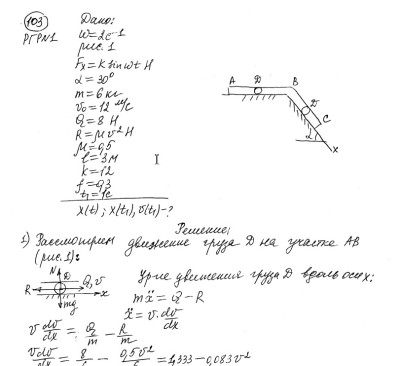 103
РГРN1
Дано:
W=2c⁻¹
рис. 1
Fx=k sin wt H
α=30°
m=6 кг
v₀=12 м/с
Q=8 H
R=μv² H
μ=0,5
l=3м
k=12
f=0,3
t₁=1c
x(t); x(t₁), v(t₁)-?
A D B
D
C
α
x
Решение:
1) Рассмотрим движение груза D на участке AB
(рис. 1):
N D Q, v
R x
mg
Ур-ие движения груза D вдоль оси x:
mẍ = Q - R
ẍ = v·dv/dx
v dv/dx = Q/m - R/m
v dv/dx = 8/6 - 0,5v²/6 = 1,333 - 0,083v²